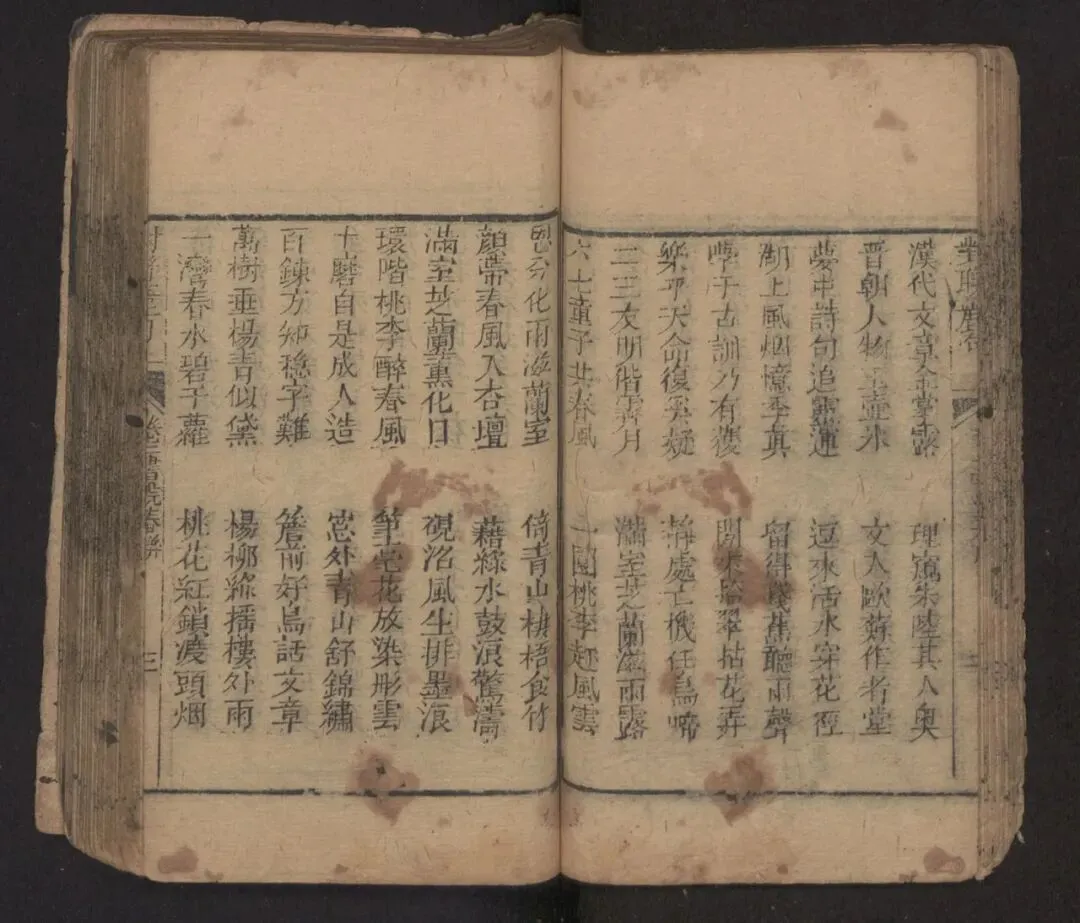 漢代文章金掌露
理窩朱陸其人奧
晉朝人物玉壺氷
文人歐蘇作者堂
夢中詩句追靈運
逗來活水穿花徑
湖上風烟憶季真
留得殘蕉聽雨聲
學于古訓乃有獲
閒來踏翠拈花弄
樂夫天命復奚疑
静處忘機任鳥啼
二三友明偕弄月
滿室芝蘭滋雨露
六七童子共春風
一園桃李趂風雲
恩分化雨滋蘭室
倚青山棲梧食竹
顔帶春風入杏壇
藉綠水鼓浪驚濤
滿室芝蘭薰化日
硯沼風生排墨浪
環階桃李醉春風
筆花花放染彤雲
十磨自是成人造
窓外青山舒錦繡
百鍊方知穩字難
簷前好鳥話文章
萬樹垂楊青似黛
楊柳綠播樓外雨
一灣春水碧于蘿
桃花紅鎖渡頭烟
書院春聯
三